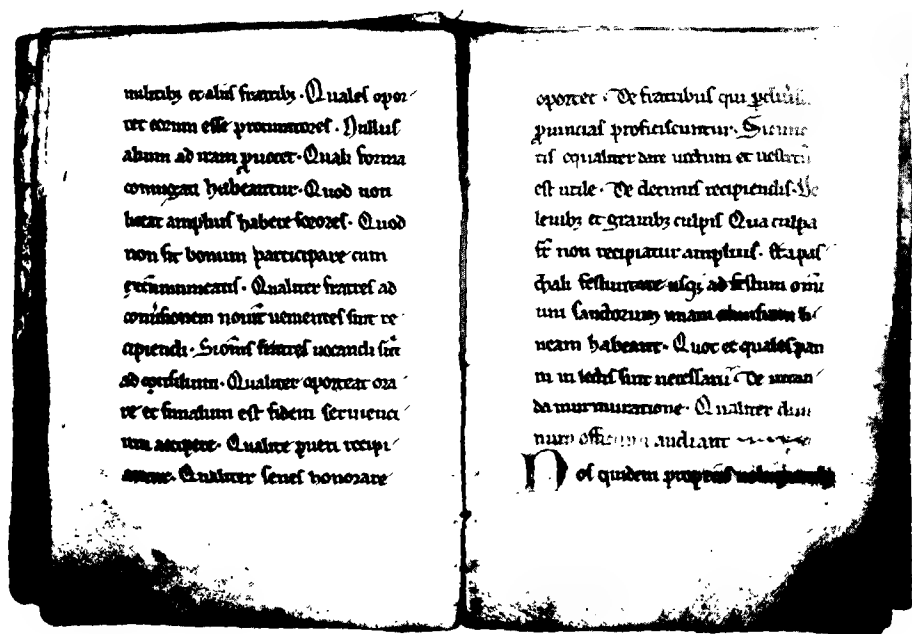 militib; et aliis fratrib;. Quales opor
tet eorum esse procuratores. Nullus
alium ad iram puocet. Quali forma
coniugati habeantur. Quod non
liceat amplius habere sorores. Quod
non sit bonum participare cum
excōmunicatis. Qualiter fratres ad
nouit uenientes sint re
cipiendi. Si om̄s fratres uocandi sūt
ad consilium. Qualiter oporteat ora
re et simulium est fidem seruienci
um accipere. Qualit̄ pueri recipi
antur. Qualiter senes honorare
oportet. De fratribus qui
puincias proficiscuntur.
tis equaliter dare uictum et
est utile. De decimis recipiendis.
leuib; et grauib; culpis Qua culpa
fr̄ non recipiatur amplius. A pas
chali festiuitate usq; ad festum omī
um sanctorum unam li
neam habeant. Quot et quales pan
ni in lectis sint necessarii De uitan
da murmuratione. Qualiter diui
num officium audiant
Nos quidem propriis